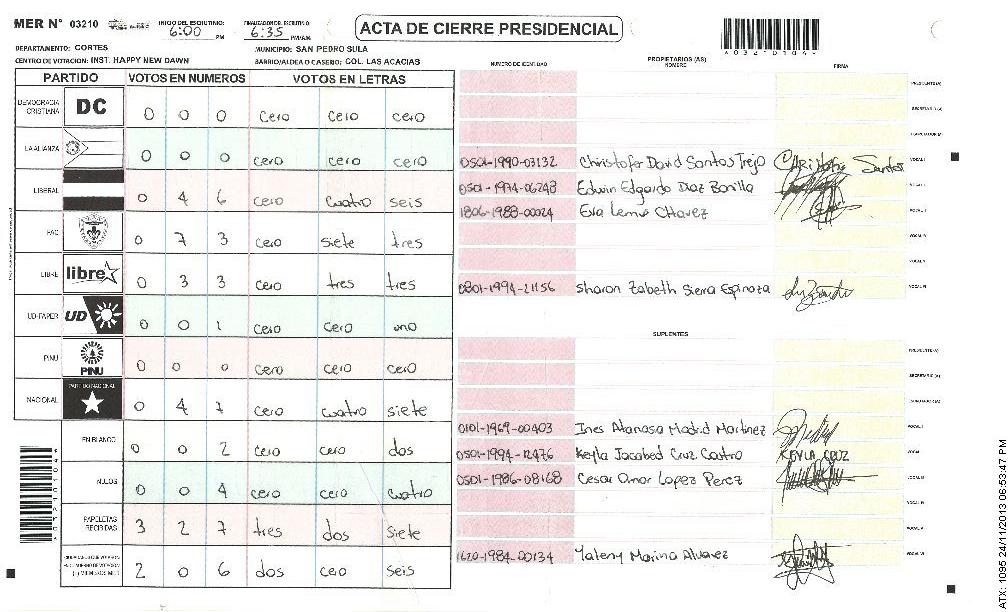 MER N° 03210
INICIO DEL ESCRUTINIO: 6:00 PM
FINALIZACION DEL ESCRUTINIO: 6:35 PM/AM
ACTA DE CIERRE PRESIDENCIAL
DEPARTAMENTO: CORTES
MUNICIPIO: SAN PEDRO SULA
CENTRO DE VOTACION: INST. HAPPY NEW DAWN
BARRIO/ALDEA O CASERIO: COL. LAS ACACIAS
PARTIDO VOTOS EN NUMEROS VOTOS EN LETRAS
DEMOCRACIA CRISTIANA DC 0 0 0 cero cero cero
LA ALIANZA 0 0 0 cero cero cero
LIBERAL 0 4 6 cero cuatro seis
PAC 0 7 3 cero siete tres
LIBRE libre 0 3 3 cero tres tres
UD-FAPER UD 0 0 1 cero cero uno
PINU PINU 0 0 0 cero cero cero
NACIONAL PARTIDO NACIONAL 0 4 7 cero cuatro siete
EN BLANCO 0 0 2 cero cero dos
NULOS 0 0 4 cero cero cuatro
PAPELETAS RECIBIDAS 3 2 7 tres dos siete
2 0 6 dos cero seis
NUMERO DE IDENTIDAD PROPIETARIOS (AS) NOMBRE FIRMA
PRESIDENTE(A)
SECRETARIO(A)
ESCRUTADOR(A)
0501-1990-03132 Christofer David Santos Trejo Christofer Santos VOCAL I
0501-1974-06248 Edwin Edgardo Diaz Bonilla
1806-1988-00024 Eva Lemus Chavez
0801-1994-21156 Sharon Zabeth Sierra Espinoza
SUPLENTES
PRESIDENTE(A)
SECRETARIO(A)
ESCRUTADOR(A)
0101-1969-00403 Ines Atanasa Madrid Martinez VOCAL I
0501-1994-12476 Keyla Jacabed Cruz Castro KEYLA CRUZ
0501-1986-08168 Cesar Omar Lopez Perez
1620-1984-00134 Yaleny Marina Alvarez
ATX: 1095 24/11/2013 06:53:47 PM